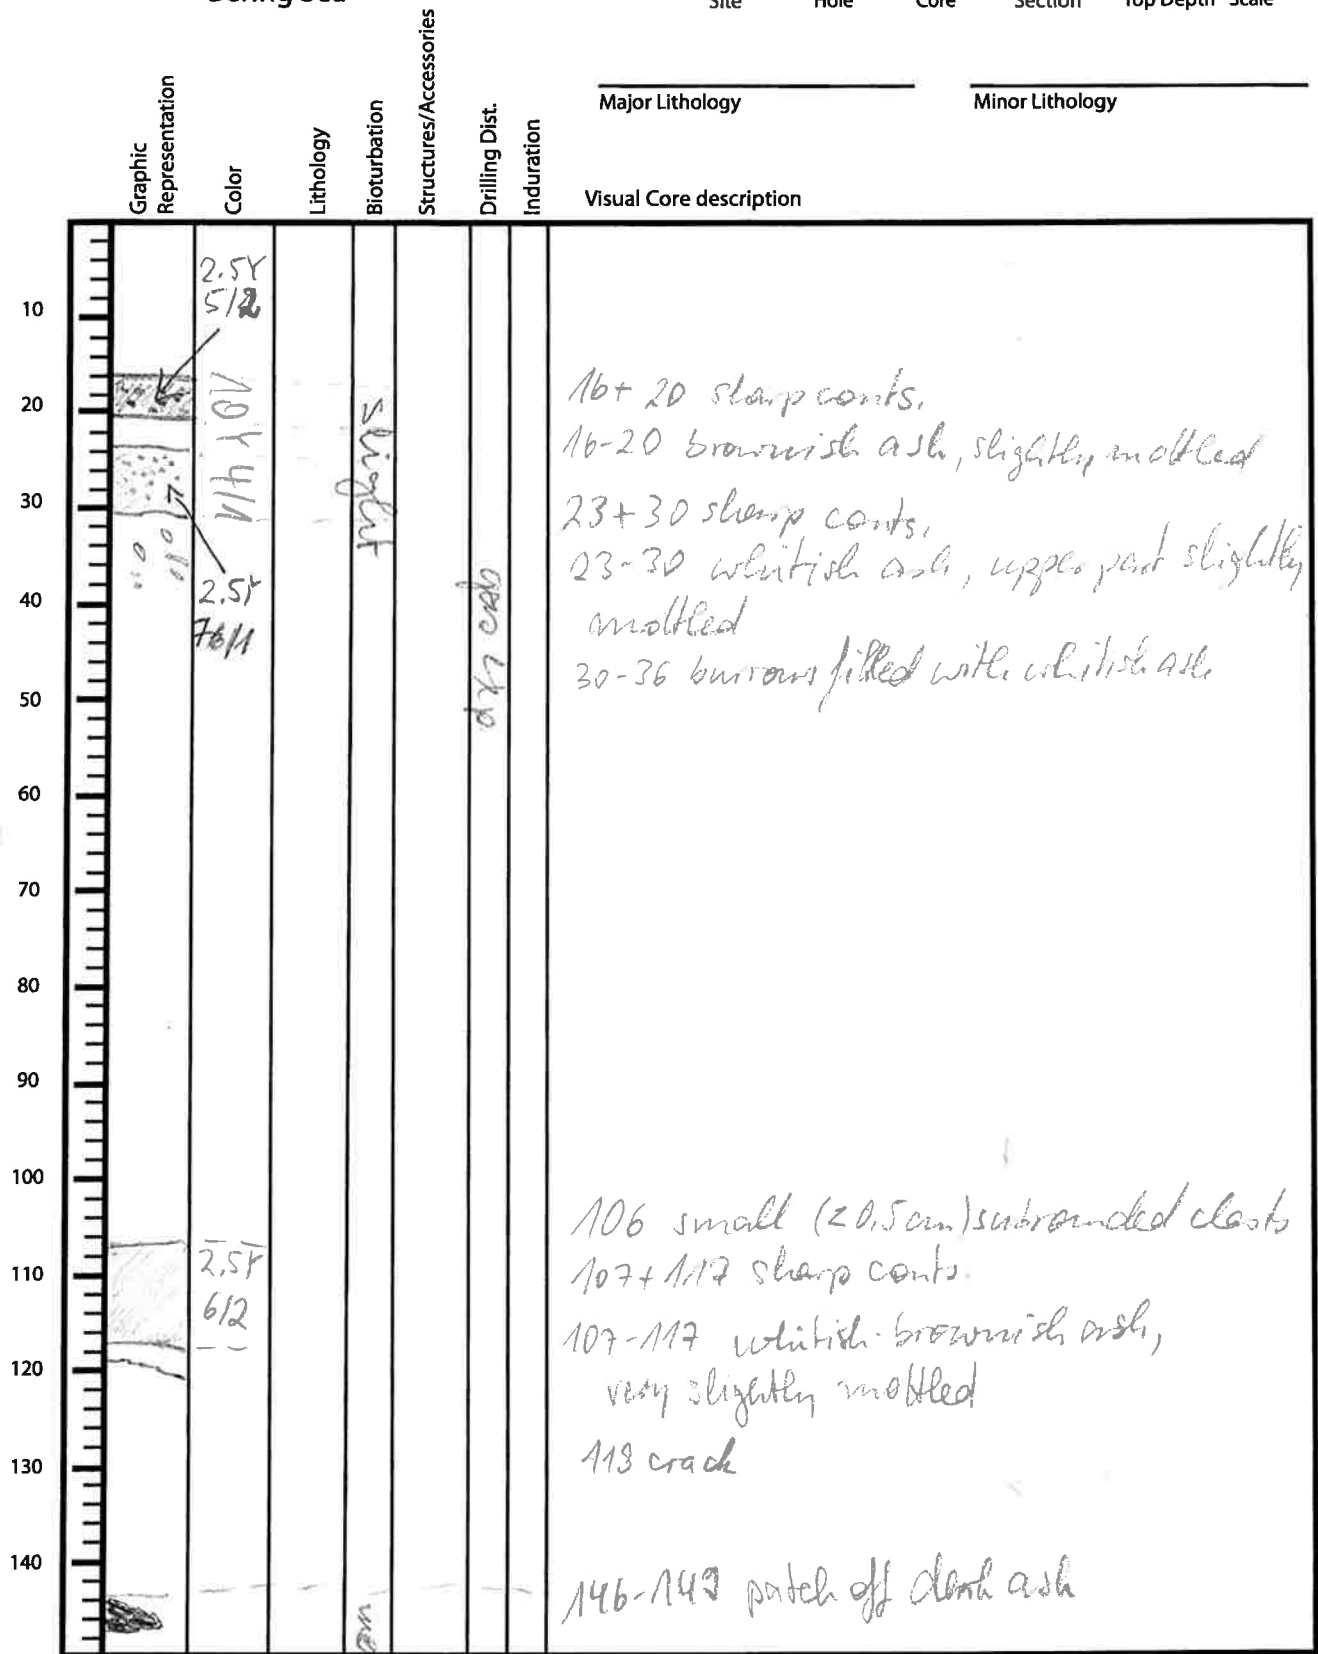 Bering Sea
Site Hole Core Section Top Depth Scale
Major Lithology
Minor Lithology
Graphic Representation
Color
Lithology
Bioturbation
Structures/Accessories
Drilling Dist.
Induration
Visual Core description
10
20
30
40
50
60
70
80
90
100
110
120
130
140
2.5Y
5/2
10Y 4/1
2.5Y
/1
slight
gas exp
2.5Y
6/2
16+20 sharp conts.
16-20 brownish ash, slightly mottled
23+30 sharp conts.
23-30 whitish ash, upper part slightly
mottled
30-36 burrows filled with whitish ash
106 small (<0,5cm) subrounded clasts
107+117 sharp conts.
107-117 whitish-brownish ash,
very slightly mottled
crack
146-149 patch off dark ash